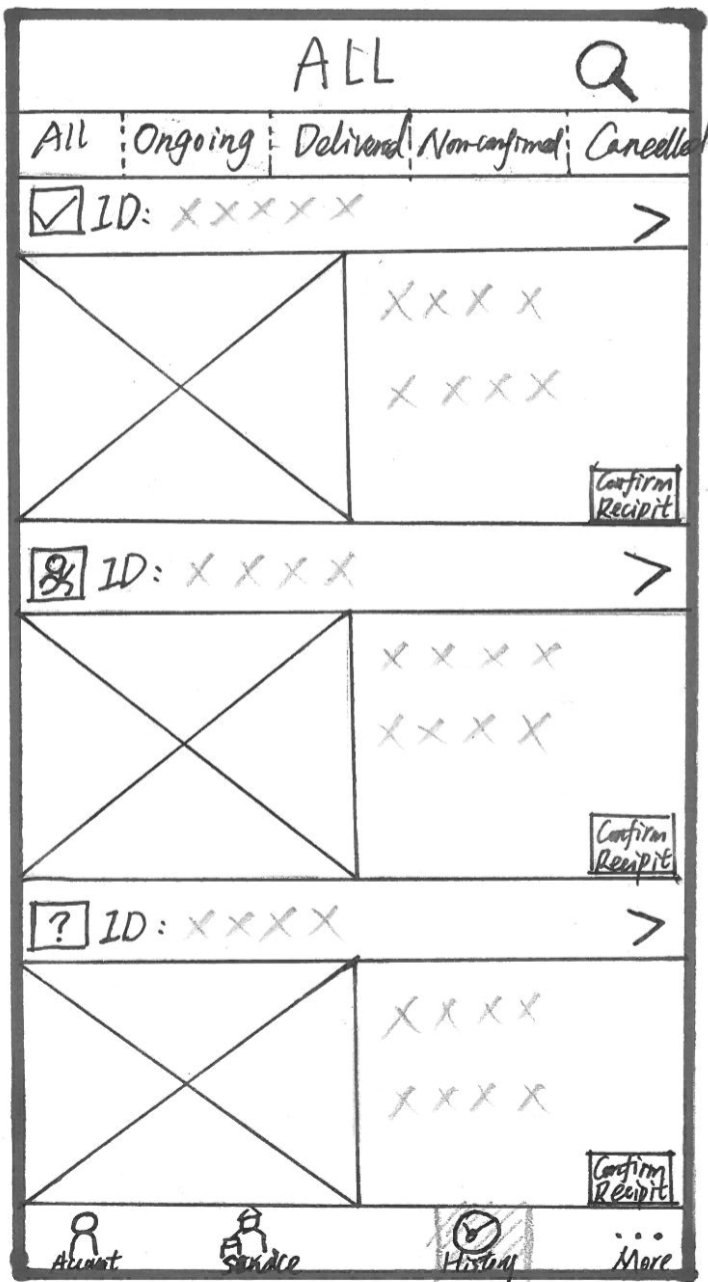 ALL
All Ongoing Delivered Non-confirmed Cancelled
ID: XXXXX >
XXXX
XXXX
Confirm
Recipit
ID: XXXX >
XXXX
XXXX
Confirm
Recipit
? ID: XXXX >
XXXX
XXXX
Confirm
Recipit
Account Service History ... More